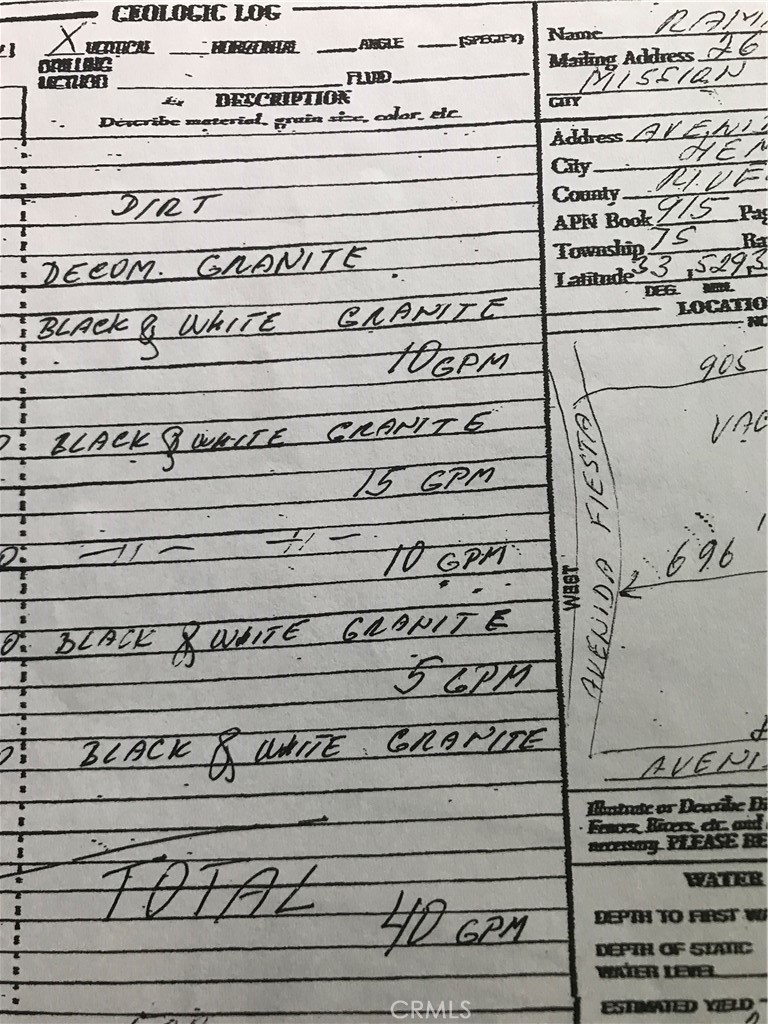 GEOLOGIC LOG
X VERTICAL ___ HORIZONTAL ___ ANGLE ___ (SPECIFY)
DRILLING
METHOD FLUID
DESCRIPTION
Describe material, grain size, color, etc.
DIRT
DECOM. GRANITE
BLACK & WHITE GRANITE
10 GPM
BLACK & WHITE GRANITE
15 GPM
—11— —11—
10 GPM
BLACK & WHITE GRANITE
5 GPM
BLACK & WHITE GRANITE
TOTAL
40 GPM
Name
Mailing Address 26
MISSION
CITY
Address
City
County
APN Book 915
Township 7S
Latitude 33 529
DEG. MIN.
905
WEST
AVENIDA FIESTA
696
Illustrate or Describe
Fences, Rivers, etc. and
necessary. PLEASE
WATER
DEPTH TO FIRST
DEPTH OF STATIC
WATER LEVEL
ESTIMATED YIELD
CRMLS